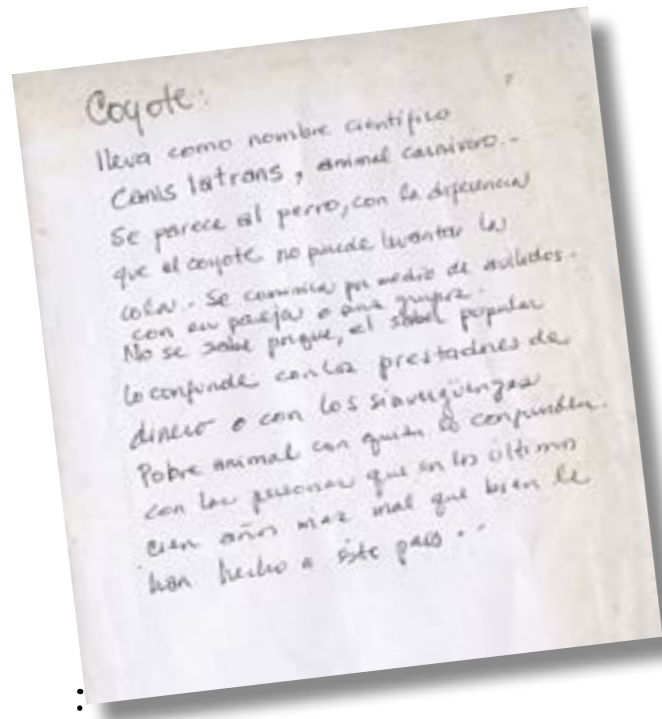 Coyote:
lleva como nombre científico
Canis latrans, animal carnivoro.-
Se parece al perro, con la diferencia
que el coyote no puede levantar la
cola. Se comunica por medio de aullidos.
con su pareja o sus
No se sabe porque, el saber popular
lo confunde con los prestadores de
dinero o con los sinvergüenzas
Pobre animal con quien lo confunden.
con las personas que en los últimos
cien años mas mal que bien le
han hecho a este pais..
: